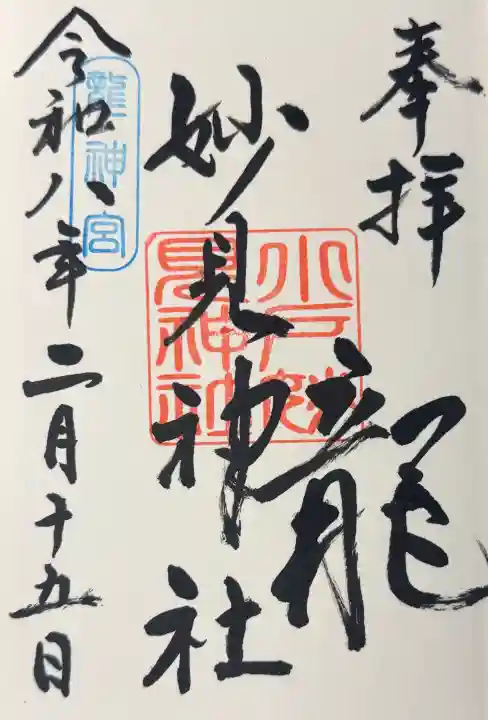 奉拝
龍
妙見神社
水戸妙
見神社
龍神宮
令和八年二月十五日